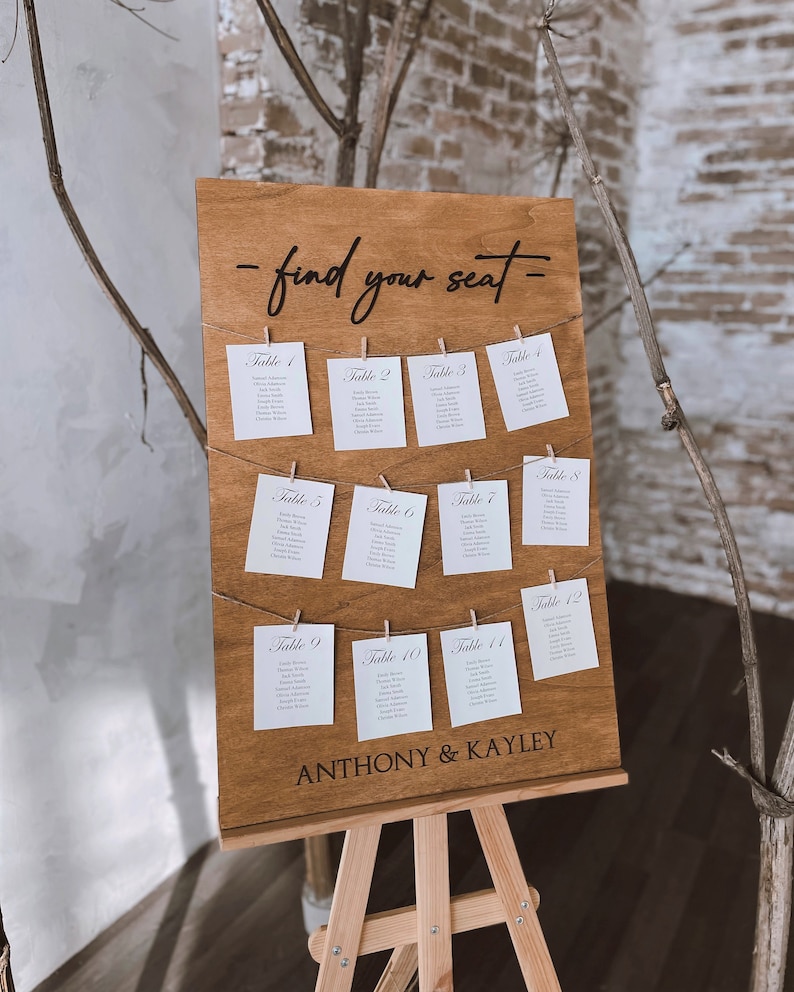 - find your seat -
Table 1
Samuel Adamson
Olivia Adamson
Jack Smith
Emma Smith
Emily Brown
Thomas Wilson
Joseph Evans
Christin Wilson
Table 2
Emily Brown
Thomas Wilson
Jack Smith
Emma Smith
Samuel Adamson
Olivia Adamson
Joseph Evans
Christin Wilson
Table 3
Samuel Adamson
Olivia Adamson
Jack Smith
Emma Smith
Emily Brown
Thomas Wilson
Joseph Evans
Christin Wilson
Table 4
Emily Brown
Thomas Wilson
Jack Smith
Emma Smith
Samuel Adamson
Olivia Adamson
Joseph Evans
Christin Wilson
Table 5
Emily Brown
Thomas Wilson
Jack Smith
Emma Smith
Samuel Adamson
Olivia Adamson
Joseph Evans
Christin Wilson
Table 6
Samuel Adamson
Olivia Adamson
Jack Smith
Emma Smith
Emily Brown
Thomas Wilson
Joseph Evans
Christin Wilson
Table 7
Emily Brown
Thomas Wilson
Jack Smith
Emma Smith
Samuel Adamson
Olivia Adamson
Joseph Evans
Christin Wilson
Table 8
Samuel Adamson
Olivia Adamson
Jack Smith
Emma Smith
Emily Brown
Thomas Wilson
Joseph Evans
Christin Wilson
Table 9
Emily Brown
Thomas Wilson
Jack Smith
Emma Smith
Samuel Adamson
Olivia Adamson
Joseph Evans
Christin Wilson
Table 10
Emily Brown
Thomas Wilson
Jack Smith
Emma Smith
Samuel Adamson
Olivia Adamson
Joseph Evans
Christin Wilson
Table 11
Emily Brown
Thomas Wilson
Jack Smith
Emma Smith
Samuel Adamson
Olivia Adamson
Joseph Evans
Christin Wilson
Table 12
Samuel Adamson
Olivia Adamson
Jack Smith
Emma Smith
Emily Brown
Thomas Wilson
Joseph Evans
Christin Wilson
ANTHONY & KAYLEY